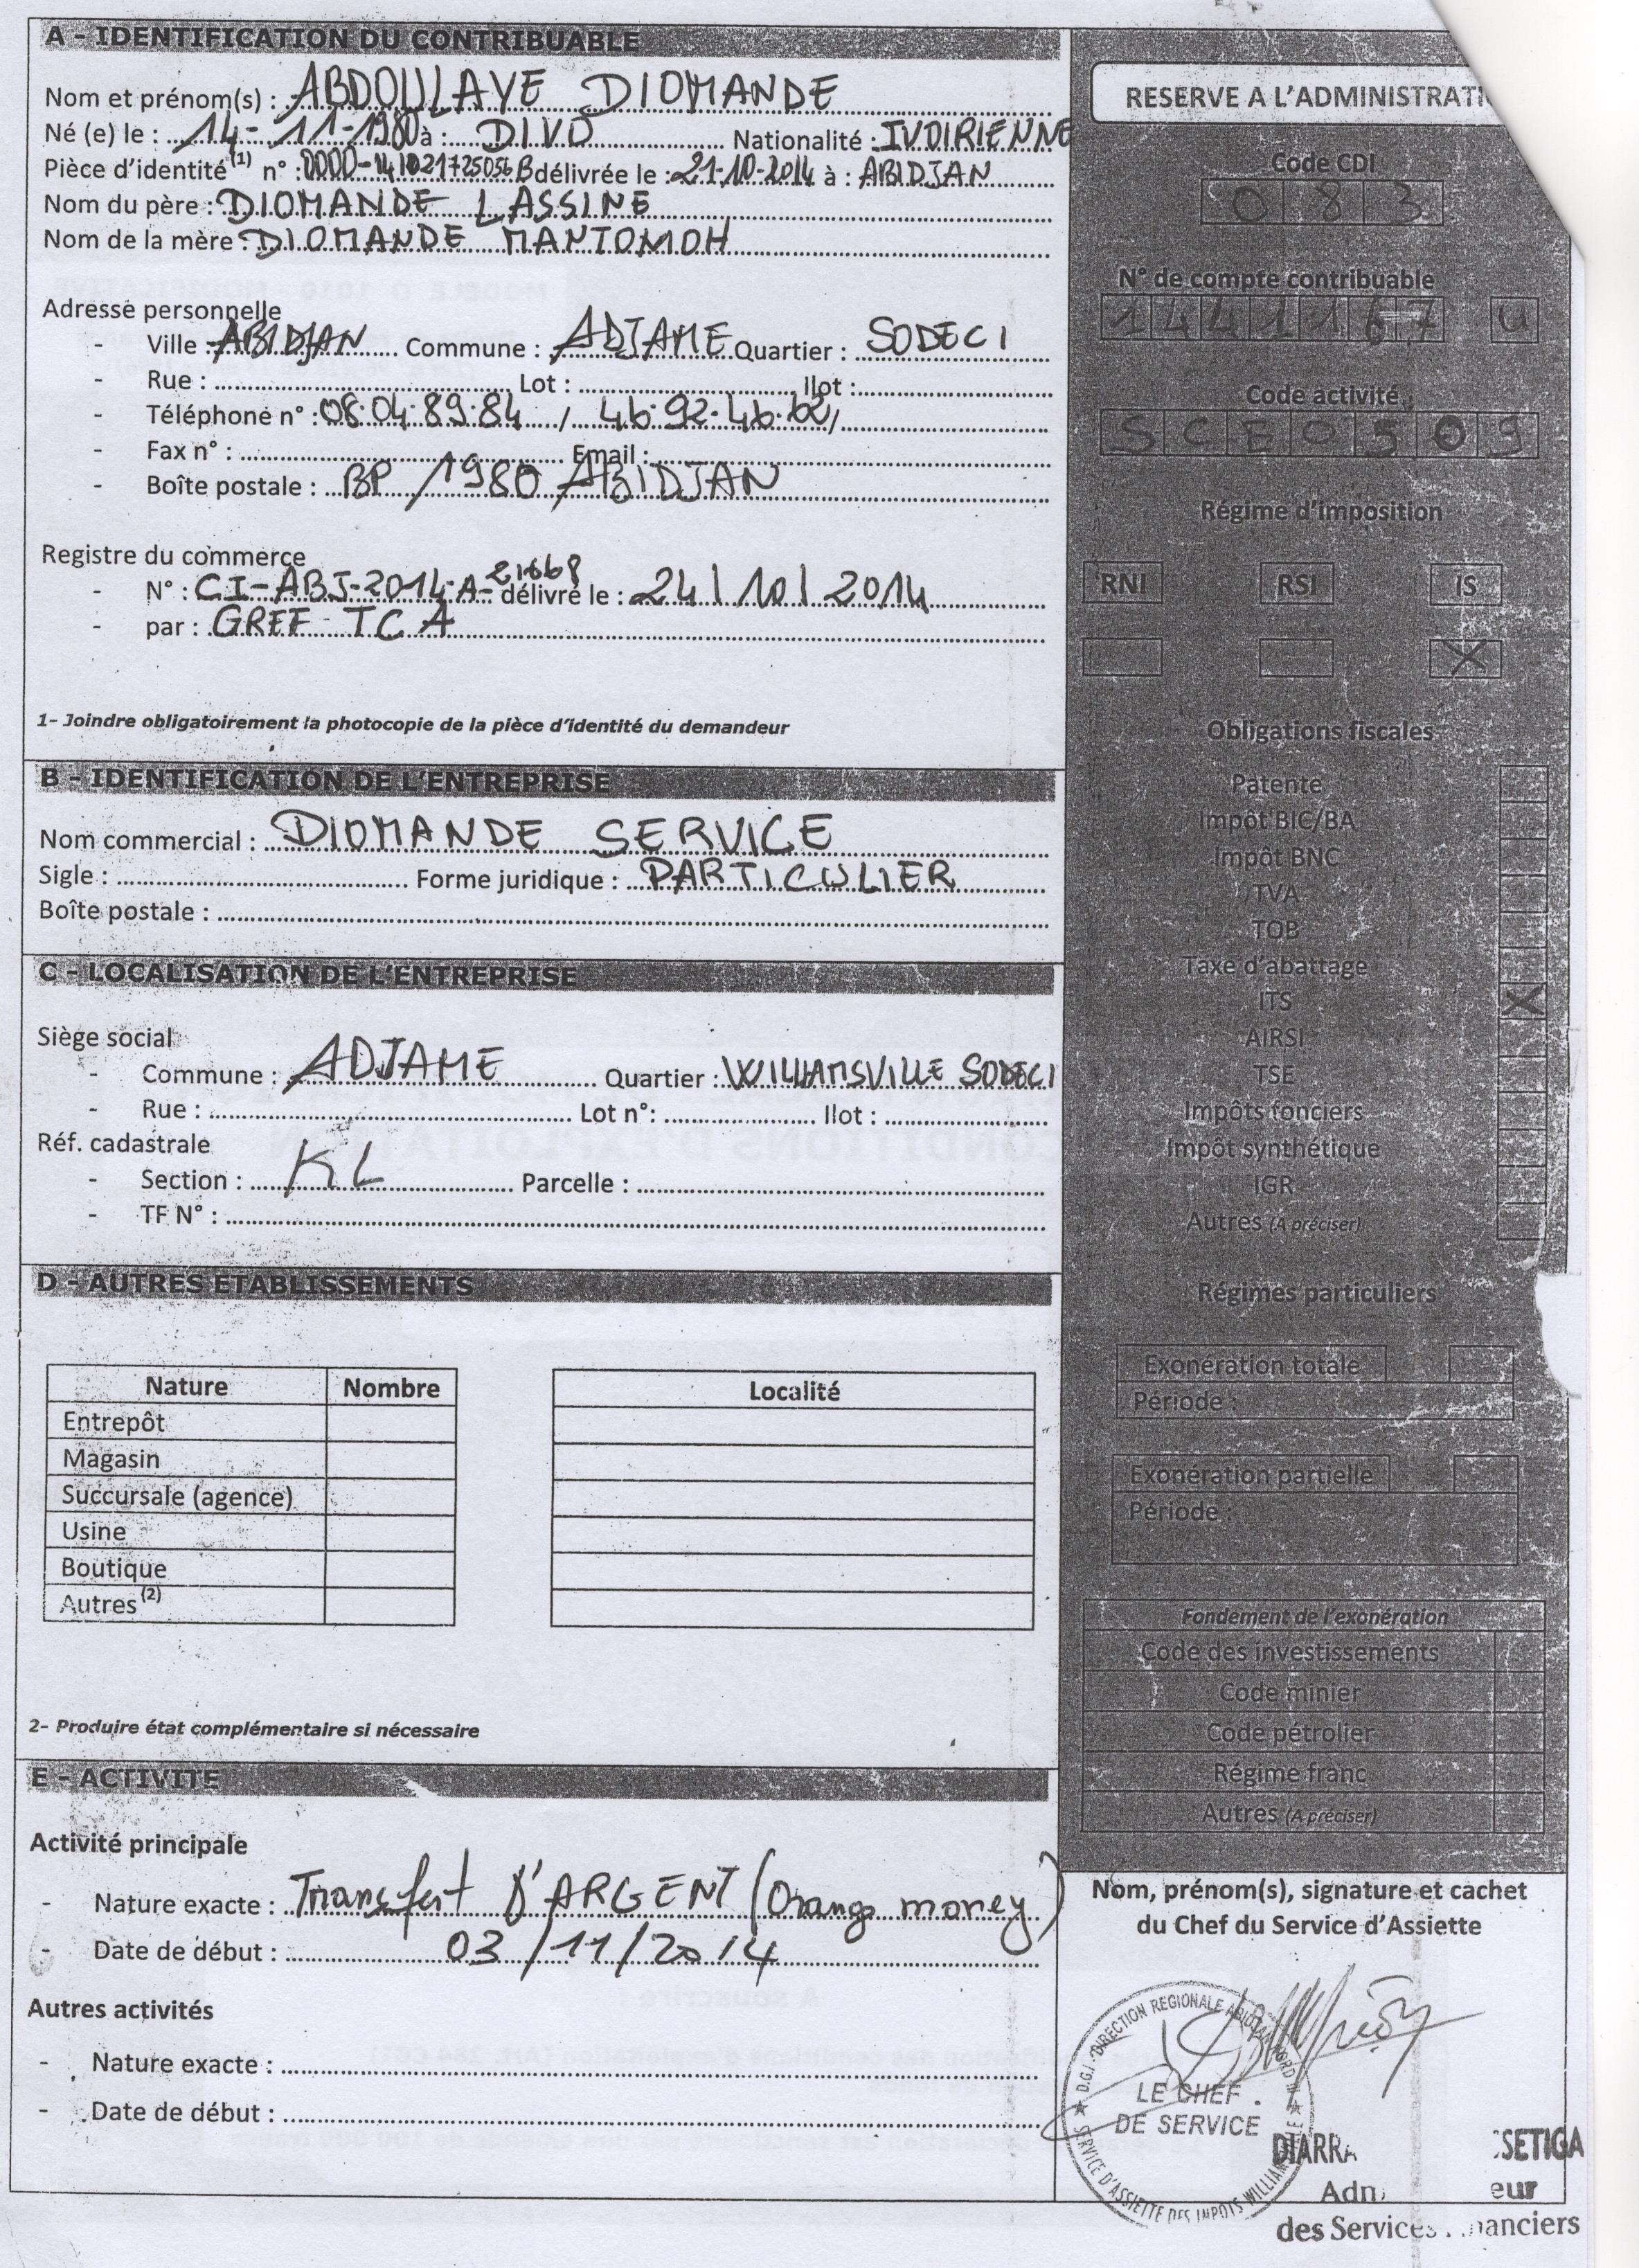 A - IDENTIFICATION DU CONTRIBUABLE
Nom et prénom(s) : ABDOULAYE DIOMANDE
Né (e) le : 14-11-1980 à : DIVO Nationalité : IVOIRIENNE
Pièce d'identité (1) n° : délivrée le : 21-10-2014 à : ABIDJAN
Nom du père : DIOMANDE LASSINE
Nom de la mère : DIOMANDE MANTOMOH
Adresse personnelle
- Ville : ABIDJAN Commune : ADJAME Quartier : SODECI
- Rue : Lot : Ilot :
- Téléphone n° : 08.04.89.84 / 46.92.46.62 /
- Fax n° : Email :
- Boîte postale : BP 1980 ABIDJAN
Registre du commerce
- N° : CI-ABJ-2014-A-21668 délivré le : 24/10/2014
- par : GREF TCA
1- Joindre obligatoirement la photocopie de la pièce d'identité du demandeur
B - IDENTIFICATION DE L'ENTREPRISE
Nom commercial : DIOMANDE SERVICE
Sigle : Forme juridique : PARTICULIER
Boîte postale :
C - LOCALISATION DE L'ENTREPRISE
Siège social
- Commune : ADJAME Quartier : WILLIAMSVILLE SODECI
- Rue : Lot n°: Ilot :
Réf. cadastrale
- Section : KL Parcelle :
- TF N° :
D - AUTRES ETABLISSEMENTS
Nature Nombre Localité
Entrepôt
Magasin
Succursale (agence)
Usine
Boutique
Autres (2)
2- Produire état complémentaire si nécessaire
E - ACTIVITE
Activité principale
- Nature exacte : Transfert D'ARGENT (Orange money)
- Date de début : 03/11/2014
Autres activités
- Nature exacte :
- Date de début :
RESERVE A L'ADMINISTRATI
Code CDI
0 8 3
N° de compte contribuable
1 4 4 1 1 6 7 U
Code activité
S C E 0 5 0 9
Régime d'imposition
RNI RSI IS
X
Obligations fiscales
Patente
Impôt BIC/BA
Impôt BNC
TVA
TOB
Taxe d'abattage
ITS X
AIRSI
TSE
Impôts fonciers
Impôt synthétique
IGR
Autres (A préciser)
Régimes particuliers
Exonération totale
Période :
Exonération partielle
Période :
Fondement de l'exonération
Code des investissements
Code minier
Code pétrolier
Régime franc
Autres (A préciser)
Nom, prénom(s), signature et cachet
du Chef du Service d'Assiette
D.G.I. DIRECTION REGIONALE ABIDJAN NORD III
LE CHEF
DE SERVICE
SERVICE D'ASSIETTE DES IMPOTS WILLIAMSVILLE
DIARRA SETIGA
Adm eur
des Services nanciers